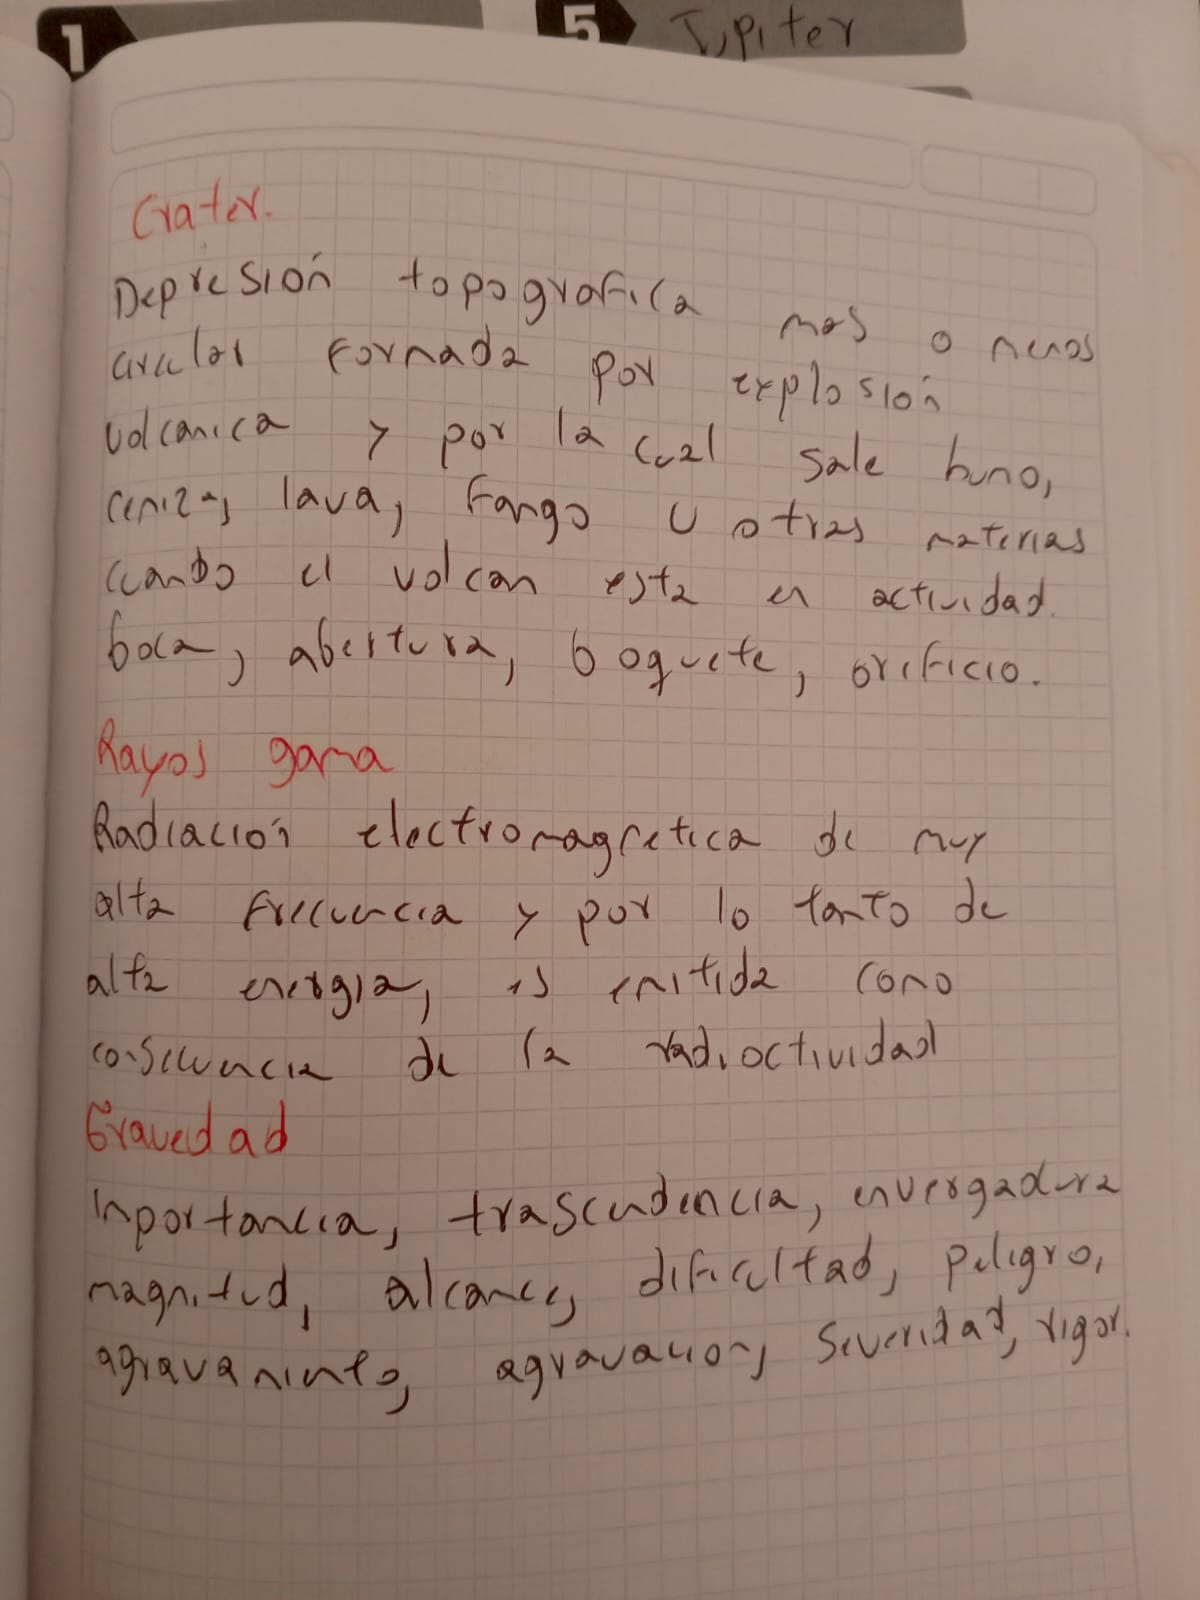 1
5 Jupiter
Crater.
Depresión topografica mas o menos
circular formada por explosión
volcanica y por la cual sale humo,
ceniza, lava, fango u otras materias
cuando el volcan esta en actividad.
boca, abertura, boquete, orificio.
Rayos gama
Radiación electromagnetica de muy
alta frecuencia y por lo tanto de
alta energia, es emitida como
consecuencia de la radioctividad
Gravedad
Importancia, trascendencia, envergadura
magnitud, alcance, dificultad, peligro,
agravamiento, agravacion, severidad, rigor.